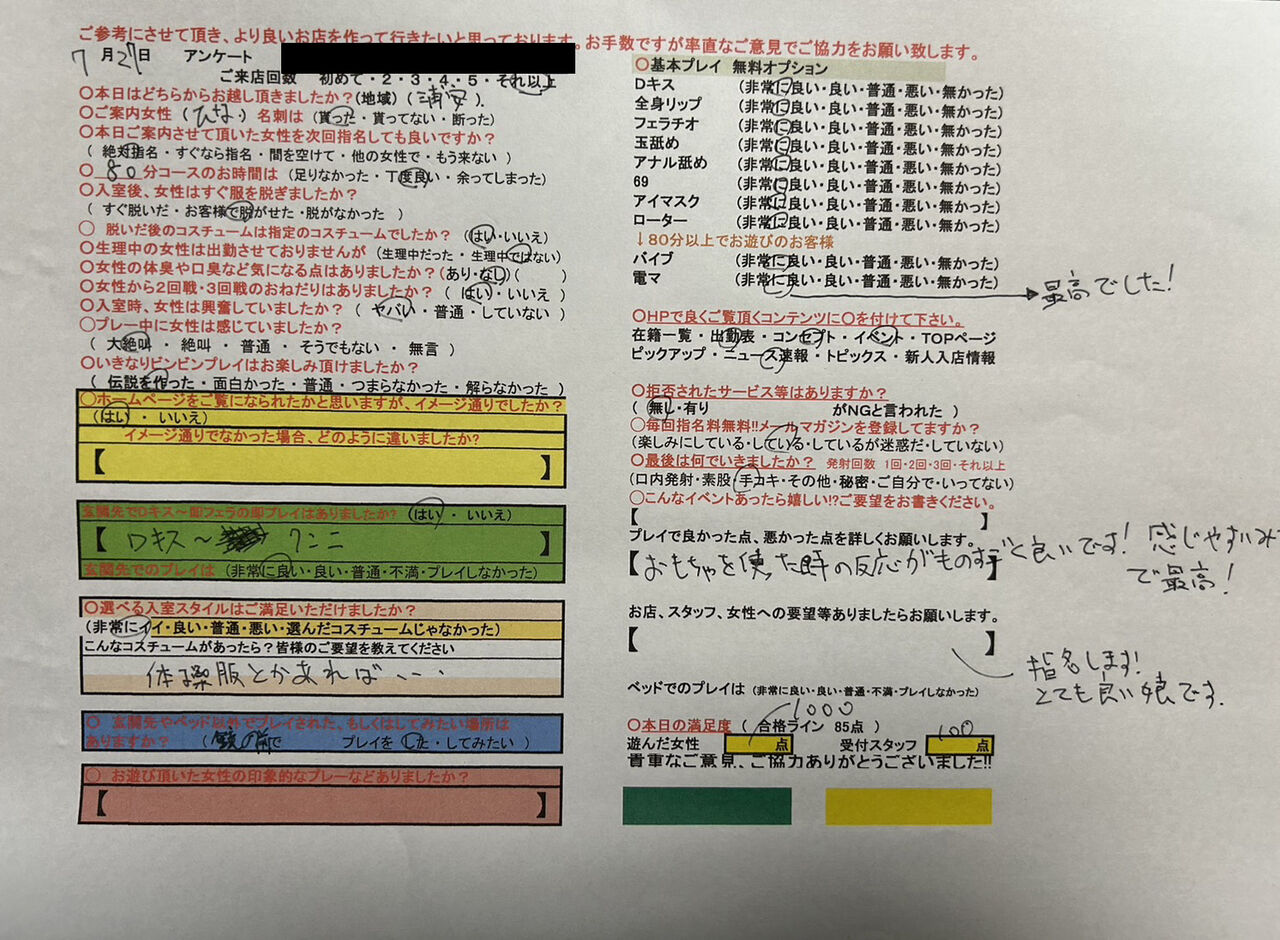 ご参考にさせて頂き、より良いお店を作って行きたいと思っております。お手数ですが率直なご意見でご協力をお願い致します。
7月27日 アンケート
ご来店回数 初めて・2・3・4・5・それ以上
〇本日はどちらからお越し頂きましたか?(地域) (浦安).
〇ご案内女性 (ひな) 名刺は (貰った・貰ってない・断った)
〇本日ご案内させて頂いた女性を次回指名しても良いですか?
( 絶対指名・すぐなら指名・間を空けて・他の女性で・もう来ない )
〇 80分コースのお時間は (足りなかった・丁度良い・余ってしまった)
〇入室後、女性はすぐ服を脱ぎましたか?
( すぐ脱いだ・お客様で脱がせた・脱がなかった )
〇 脱いだ後のコスチュームは指定のコスチュームでしたか? (はい・いいえ)
〇生理中の女性は出勤させておりませんが (生理中だった・生理中ではない)
〇女性の体臭や口臭など気になる点はありましたか?(あり・なし)( )
〇女性から2回戦・3回戦のおねだりはありましたか? ( はい・いいえ )
〇入室時、女性は興奮していましたか? ( ヤバい・普通・していない )
〇プレー中に女性は感じていましたか?
( 大絶叫・絶叫・普通・そうでもない・無言 )
〇いきなりビンビンプレイはお楽しみ頂けましたか?
( 伝説を作った・面白かった・普通・つまらなかった・解らなかった )
〇ホームページをご覧になられたかと思いますが、イメージ通りでしたか?
(はい・いいえ)
イメージ通りでなかった場合、どのように違いましたか?
【 】
玄関先でDキス～即フェラの即プレイはありましたか? (はい・いいえ)
【 Dキス～ クンニ 】
玄関先でのプレイは (非常に良い・良い・普通・不満・プレイしなかった)
〇選べる入室スタイルはご満足いただけましたか?
(非常にイイ・良い・普通・悪い・選んだコスチュームじゃなかった)
こんなコスチュームがあったら?皆様のご要望を教えてください
体操服とかあれば・・・
〇 玄関先やベッド以外でプレイされた、もしくはしてみたい場所は
ありますか? (鏡の前で プレイを した・してみたい )
〇 お遊び頂いた女性の印象的なプレーなどありましたか?
【 】
〇基本プレイ 無料オプション
Dキス (非常に良い・良い・普通・悪い・無かった)
全身リップ (非常に良い・良い・普通・悪い・無かった)
フェラチオ (非常に良い・良い・普通・悪い・無かった)
玉舐め (非常に良い・良い・普通・悪い・無かった)
アナル舐め (非常に良い・良い・普通・悪い・無かった)
69 (非常に良い・良い・普通・悪い・無かった)
アイマスク (非常に良い・良い・普通・悪い・無かった)
ローター (非常に良い・良い・普通・悪い・無かった)
↓80分以上でお遊びのお客様
バイブ (非常に良い・良い・普通・悪い・無かった)
電マ (非常に良い・良い・普通・悪い・無かった)
最高でした!
〇HPで良くご覧頂くコンテンツに〇を付けて下さい。
在籍一覧・出勤表・コンセプト・イベント・TOPページ
ピックアップ・ニュース速報・トピックス・新人入店情報
〇拒否されたサービス等はありますか?
( 無し・有り がNGと言われた )
〇毎回指名料無料!!メールマガジンを登録してますか?
(楽しみにしている・している・しているが迷惑だ・していない)
〇最後は何でいきましたか? 発射回数 1回・2回・3回・それ以上
(口内発射・素股・手コキ・その他・秘密・ご自分で・いってない)
〇こんなイベントあったら嬉しい!?ご要望をお書きください。
【 】
プレイで良かった点、悪かった点を詳しくお願いします。
【おもちゃを使った時の反応がものすごく良いです! 感じやすいみ
で最高!
】
お店、スタッフ、女性への要望等ありましたらお願いします。
【 】
指名します!
とても良い娘です.
ベッドでのプレイは (非常に良い・良い・普通・不満・プレイしなかった)
〇本日の満足度 ( 合格ライン 85点 )
遊んだ女性 1000 点 受付スタッフ 100 点
貴重なご意見、ご協力ありがとうございました!!